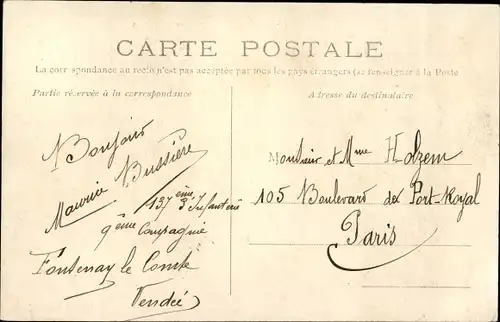 CARTE POSTALE
La correspondance au recto n'est pas acceptée par tous les pays étrangers (se renseigner à la Poste
Partie réservée à la correspondance
Adresse du destinataire
Bonjour
Maurice Bussière
137ème d'Infanterie
9ème Compagnie
Fontenay le Comte
Vendée
Monsieur et Mme Holzem
105 Boulevard de Port-Royal
Paris